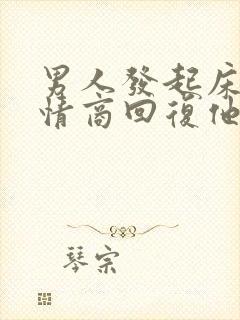 男人發起床
情商回復他
琴宗